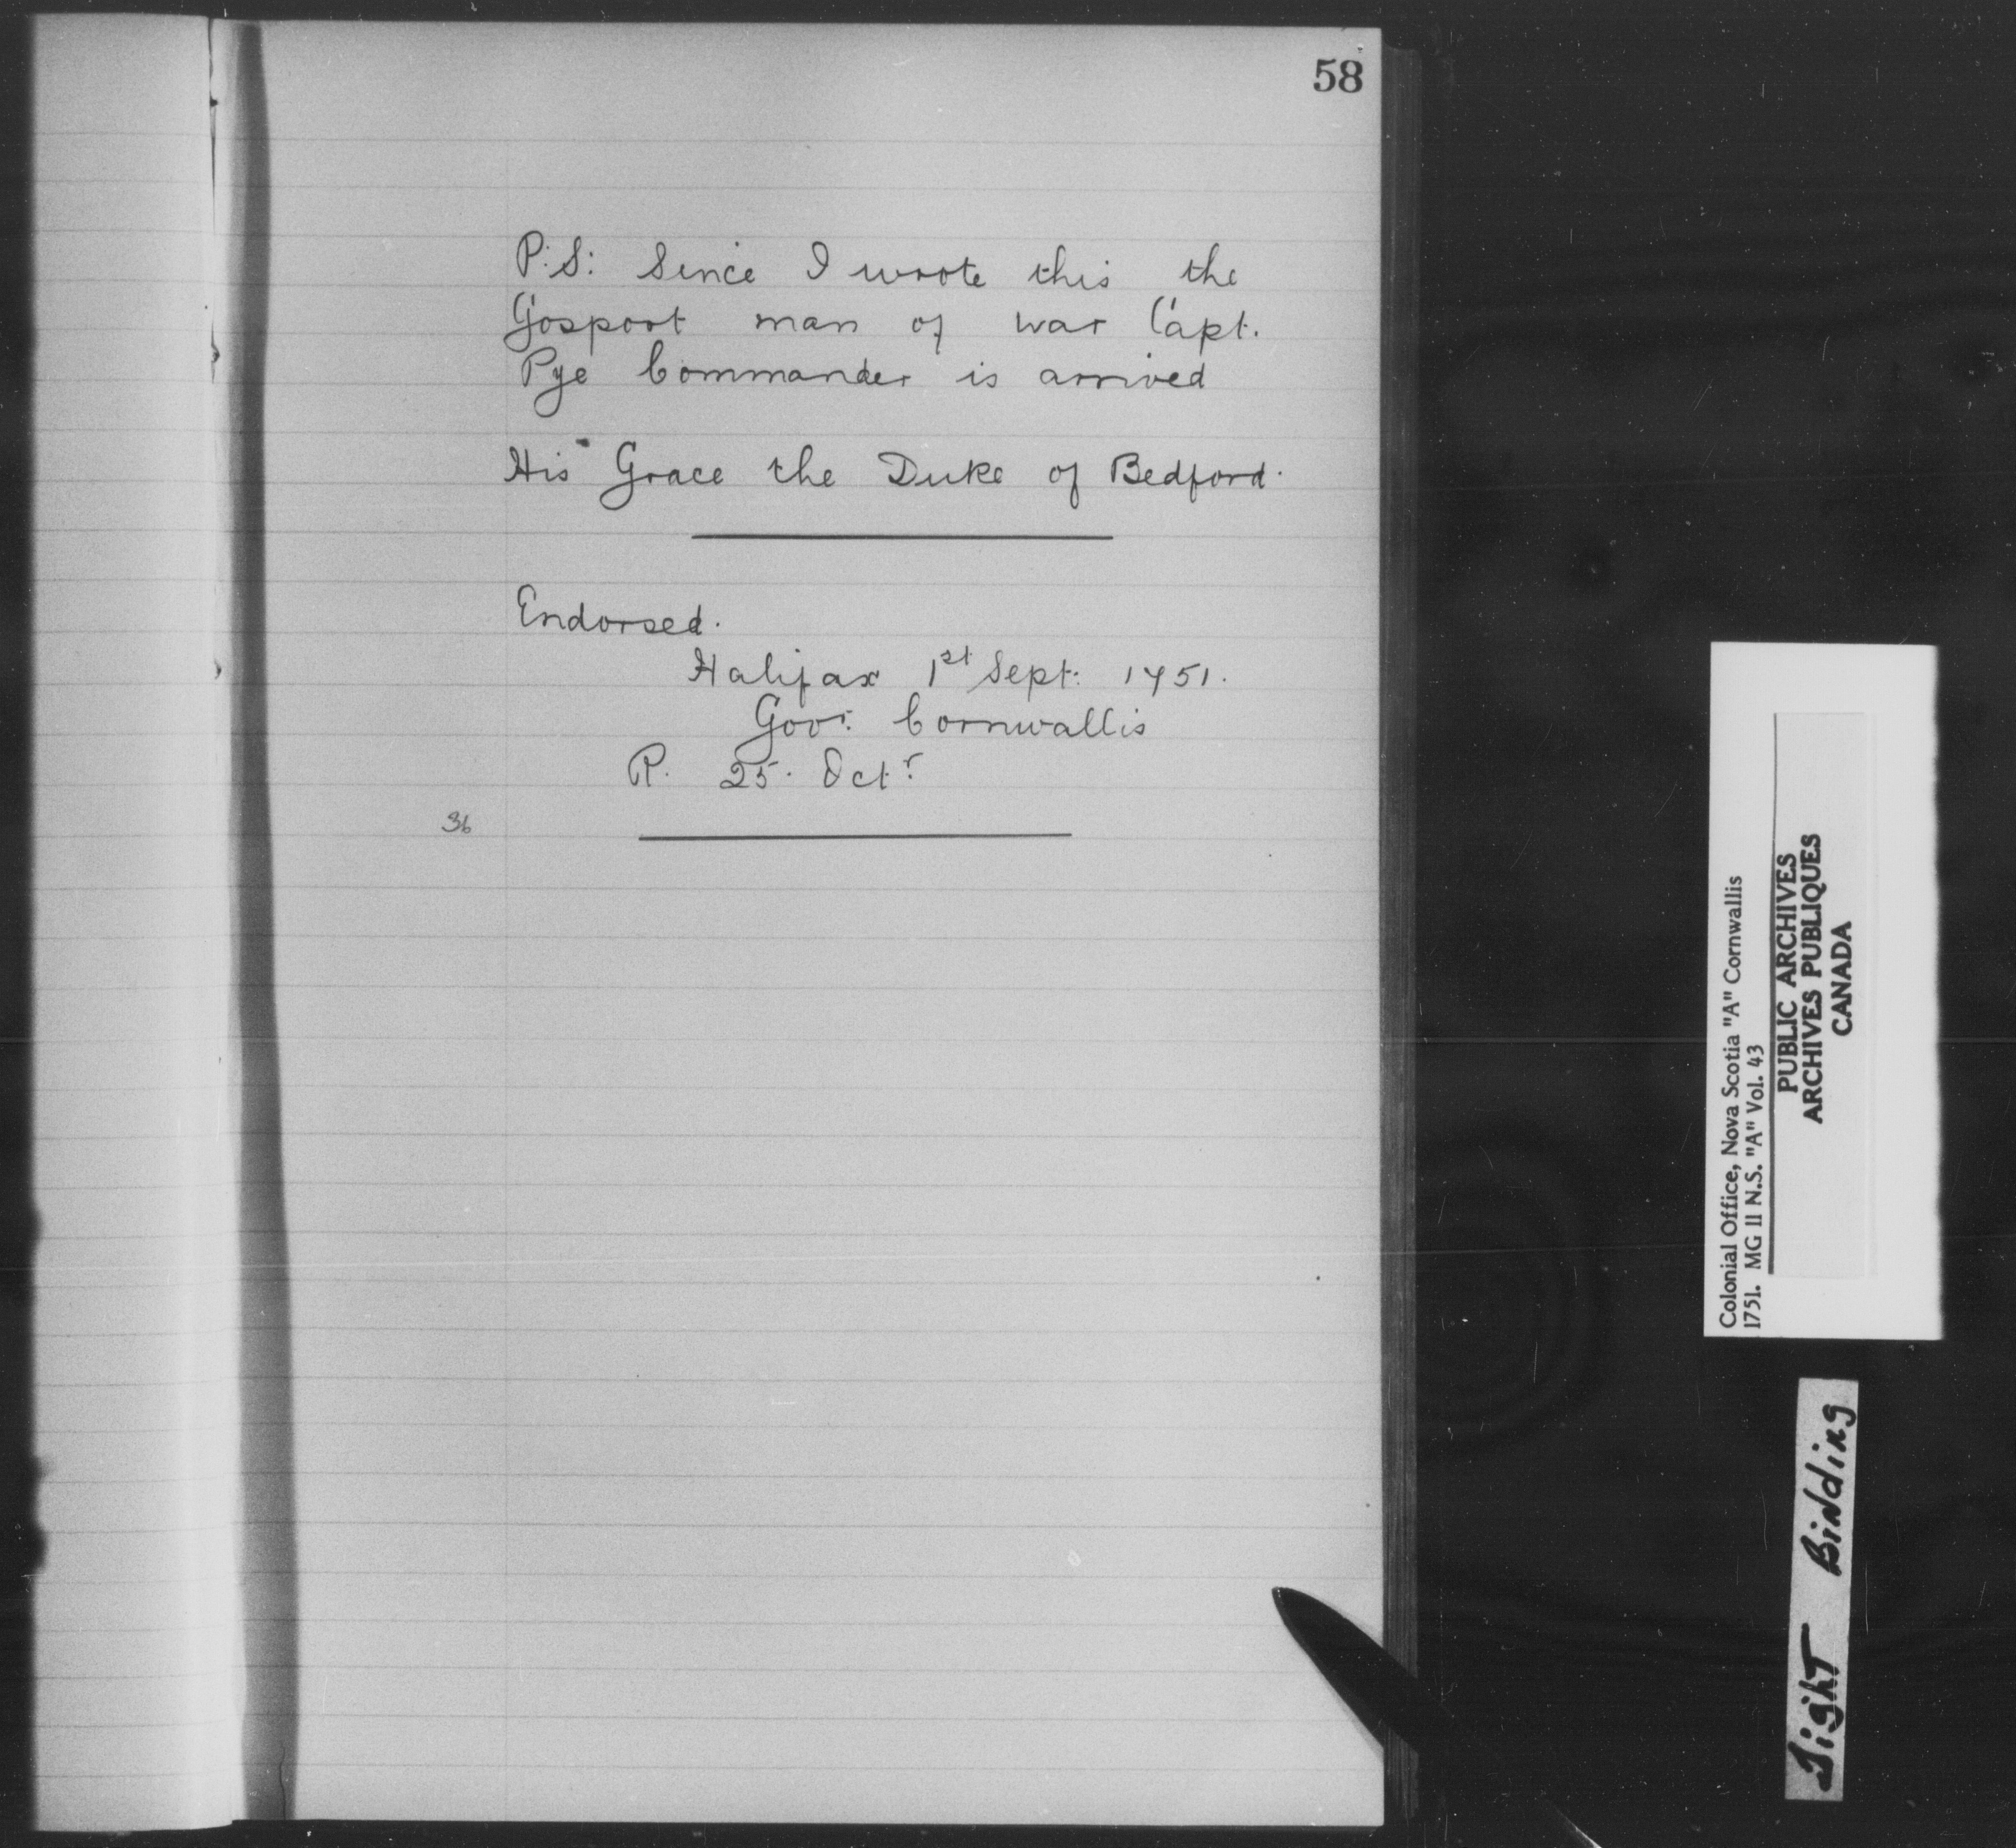 58
P.S: Since I wrote this the
Gosport man of war Capt.
Pye Commander is arrived
His Grace the Duke of Bedford.
Endorsed.
Halifax 1st Sept: 1751.
Govr. Cornwallis
R. 25. Octr.
36
Colonial Office, Nova Scotia "A" Cornwallis
1751. MG 11 N.S. "A" Vol. 43
PUBLIC ARCHIVES
ARCHIVES PUBLIQUES
CANADA
Tight Binding